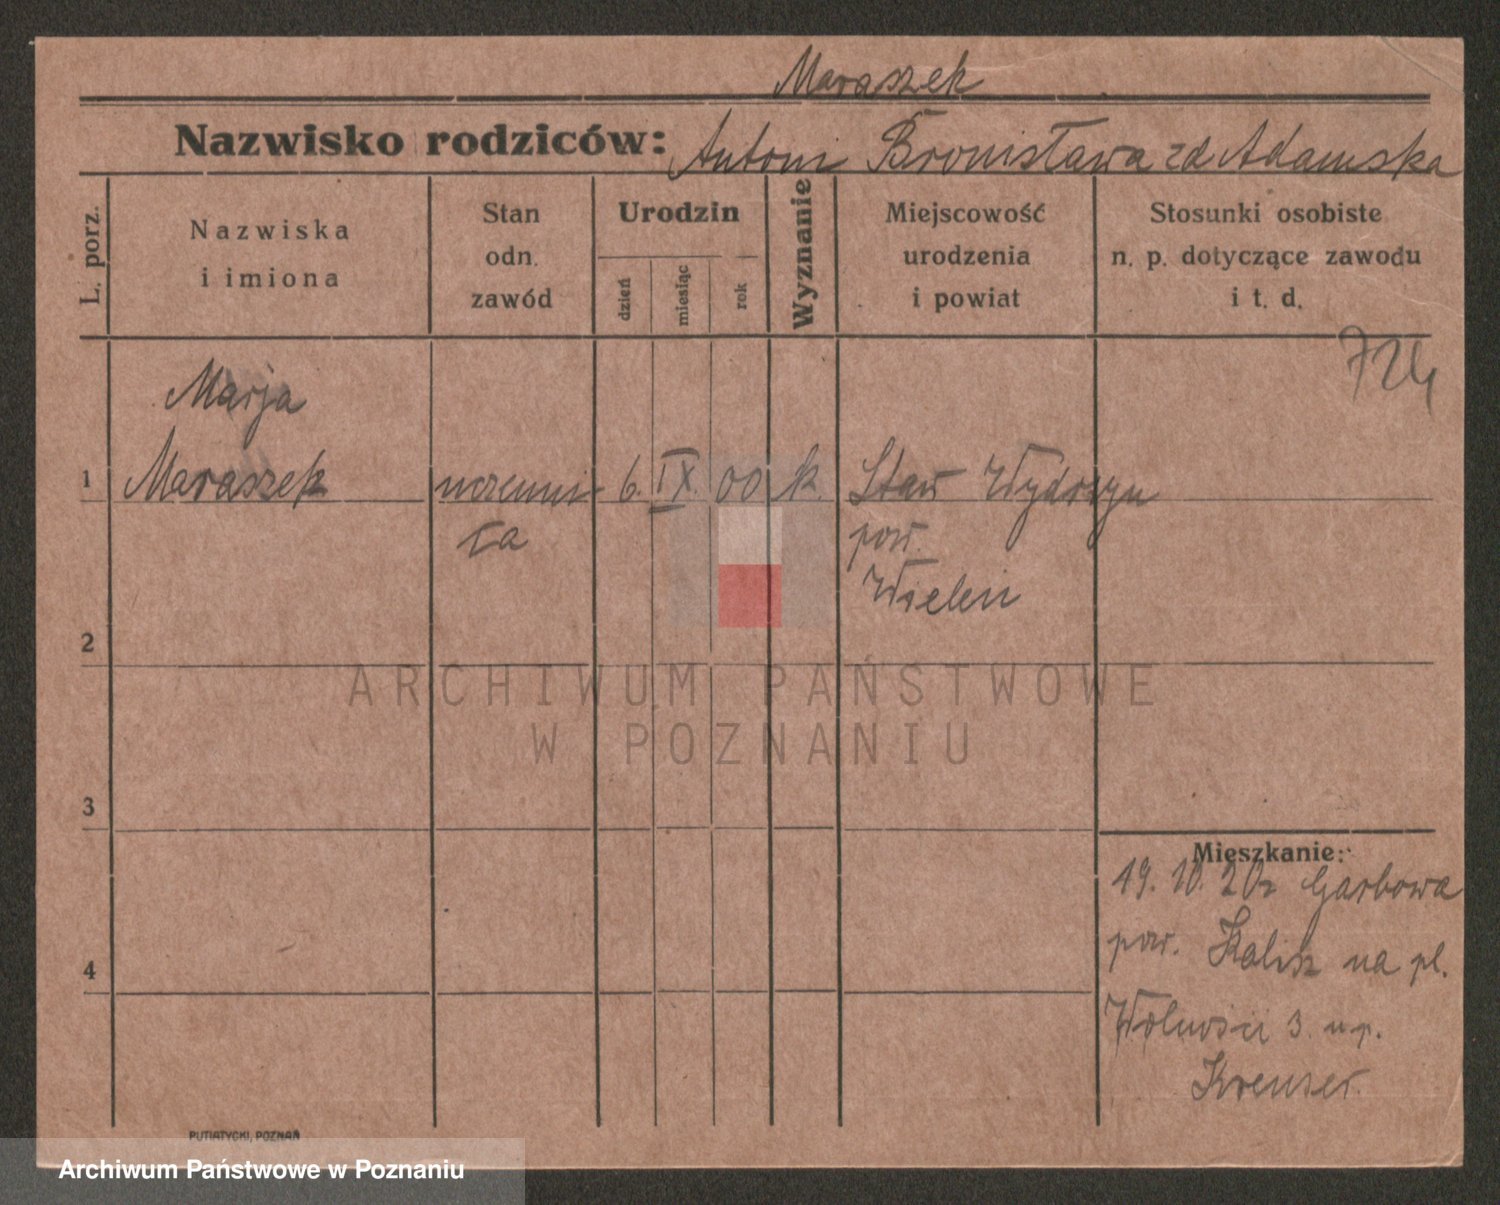 Maraszek
Nazwisko rodziców: Antoni Bronisława zd Adamska
L. porz.
Nazwiska
i imiona
Stan
odn.
zawód
Urodzin
dzień
miesiąc
rok
Wyznanie
Miejscowość
urodzenia
i powiat
Stosunki osobiste
n. p. dotyczące zawodu
i t. d.
724
Marja
1 Maraszek uczenni- 6. IX. 00 k. Staw Wydrzyn
ca pow.
Wieluń
2
ARCHIWUM PAŃSTWOWE
W POZNANIU
3
Mieszkanie:
19. 10. 20 z Garbowa
pow. Kalisz na pl.
4
Wolności 3. u p.
PUTIATYCKI, POZNAŃ
Archiwum Państwowe w Poznaniu